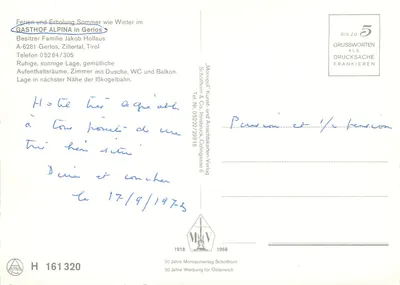 Ferien und Erholung Sommer wie Winter im
GASTHOF ALPINA in Gerlos
Besitzer Familie Jakob Hollaus
A-6281 Gerlos, Zillertal, Tirol
Telefon 05284/305
Ruhige, sonnige Lage, gemütliche
Aufenthaltsräume, Zimmer mit Dusche, WC und Balkon.
Lage in nächster Nähe der Ißkogelbahn.
Hotel très agréable
à tous points de vue
très bien situé
Diner et coucher
le 17/9/1973
H 161 320
BIS ZU 5
GRUSSWORTEN
ALS
DRUCKSACHE
FRANKIEREN
Pension et 1/2 pension
1918 1968
50 Jahre Monopolverlag Schöllhorn
50 Jahre Werbung für Österreich